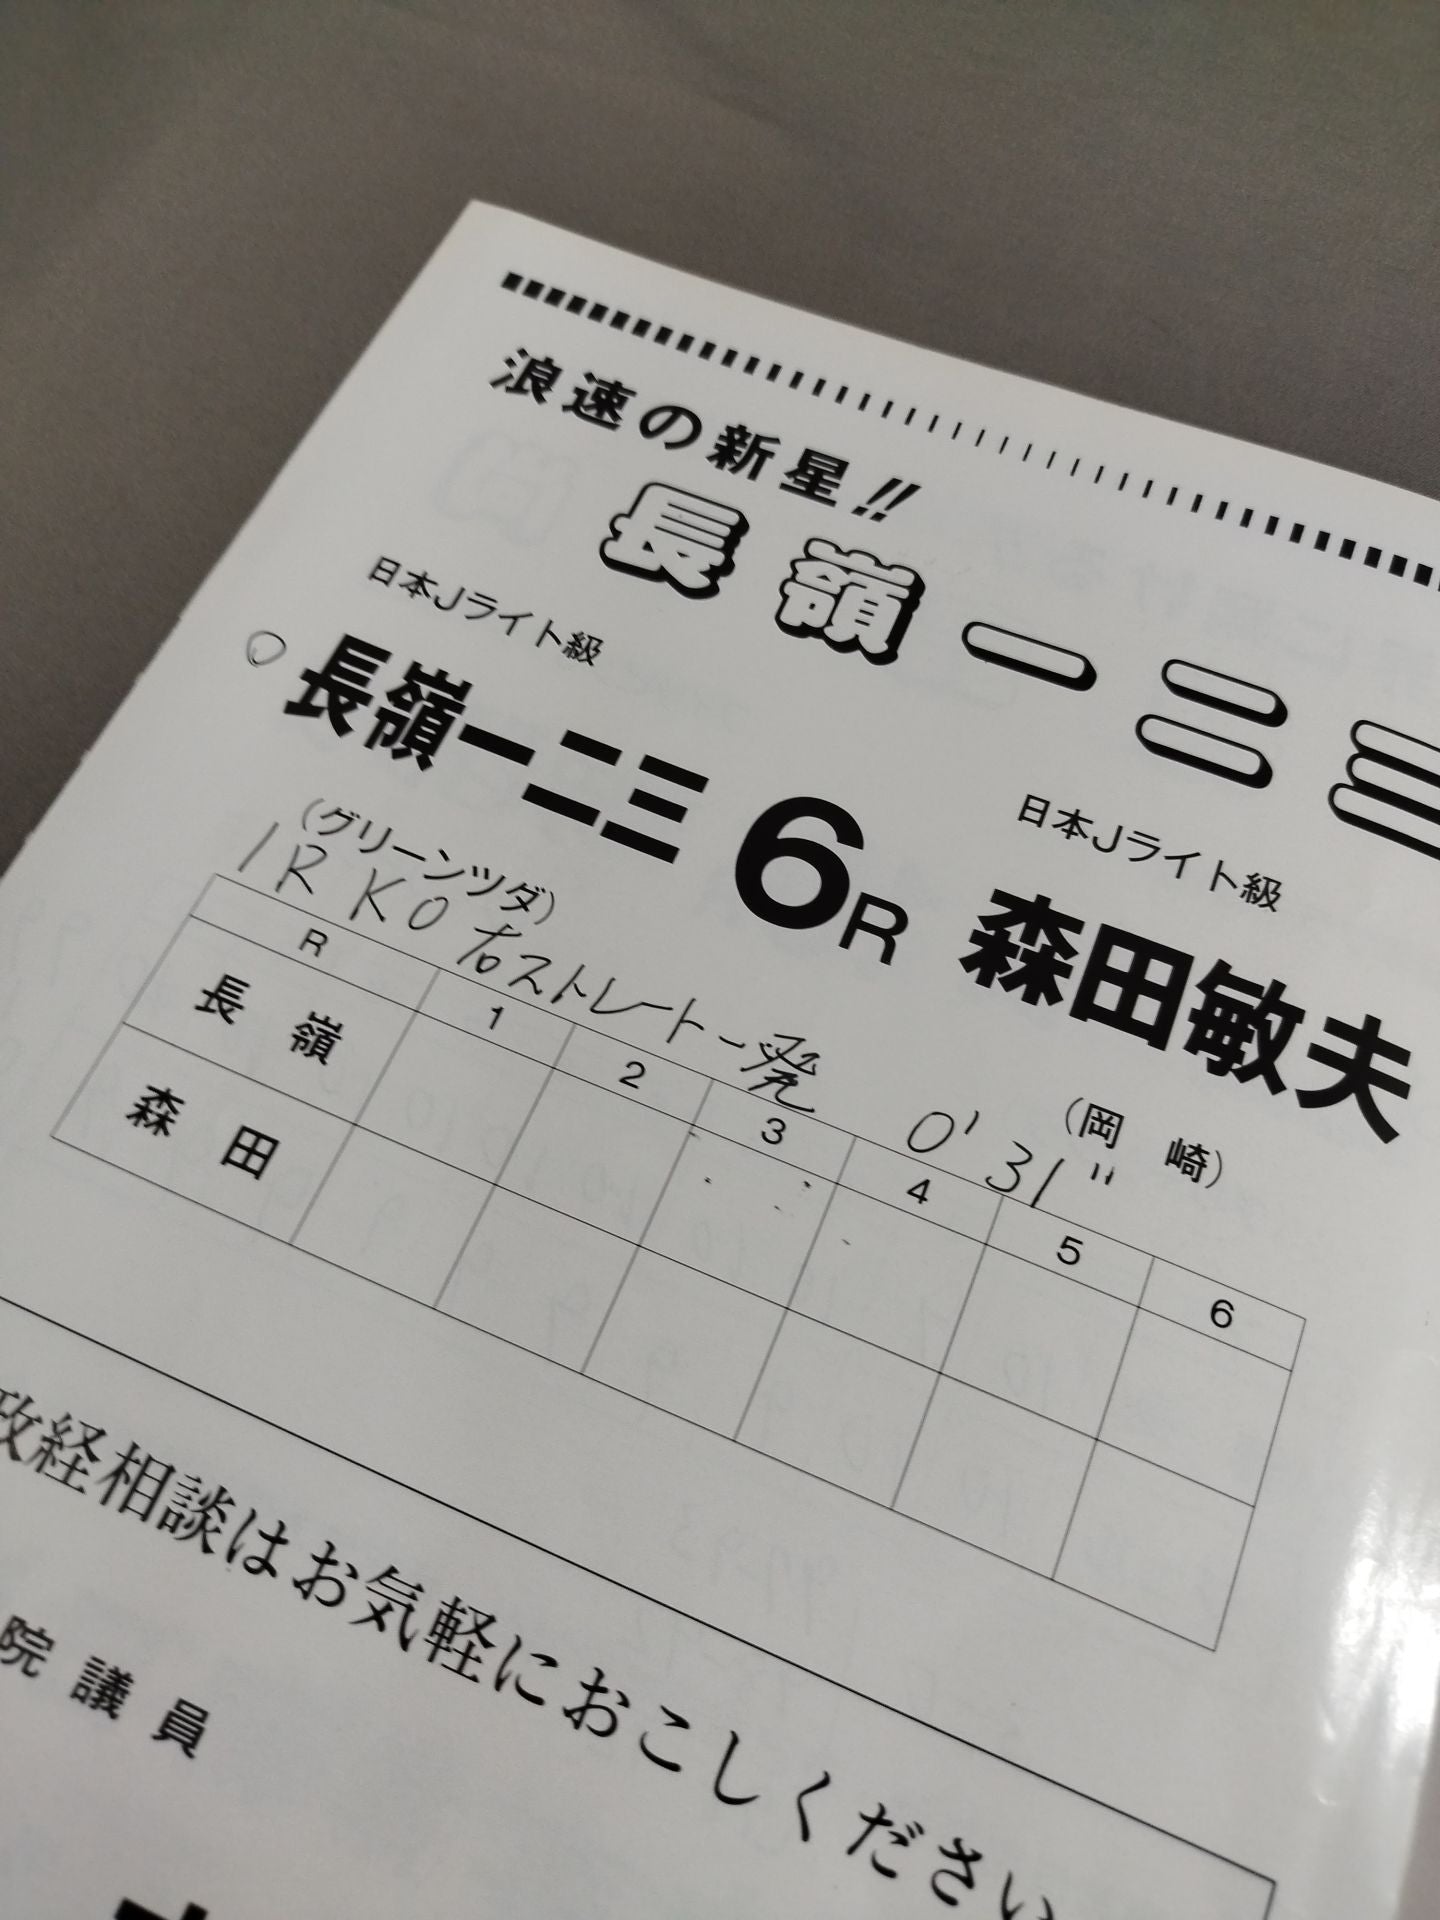 浪速の新星!!
長嶺一二三
日本Jライト級
○長嶺一二三
(グリーンツダ)
6R
日本Jライト級
森田敏夫
(岡崎)
1R KO 右ストレート一発 0'31"
R 1 2 3 4 5 6
長嶺
森田
政経相談はお気軽におこしください
院議員